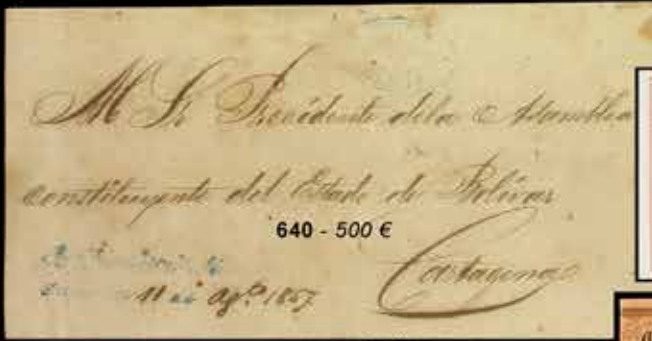 Al Sr Presidente dela Asamblea
constituyente del Estado de Bolivar
640 - 500 €
Cartagena
11 Agº. 1857